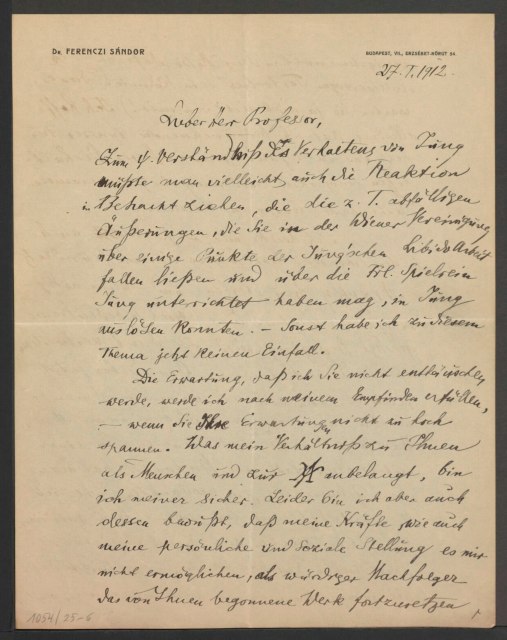 Dr. FERENCZI SÁNDOR
BUDAPEST, VII., ERZSÉBET-KÖRÚT 54.
27. I. 1912.
Lieber Herr Professor,
Zum ψ. Verständniß des Verhaltens von Jung
müßte man vielleicht auch die Reaktion
in Betracht ziehen, die die z. T. abfälligen
Äußerungen, die Sie in der Wiener Vereinigung
über einige Punkte der Jung'schen Libido Arbeit
fallen ließen und über die Frl. Spielrein
Jung unterrichtet haben mag, in Jung
auslösen konnten. – Sonst habe ich zu diesem
Thema jetzt keinen Einfall.
Die Erwartung, daß ich Sie nicht enttäuschen
werde, werde ich nach meinem Empfinden erfüllen,
– wenn Sie Ihre Erwartungen nicht zu hoch
spannen. Was mein Verhältniß zu Ihnen
als Menschen und zur ΨA anbelangt, bin
ich meiner sicher. Leider bin ich aber auch
dessen bewußt, daß meine Kräfte, wie auch
meine persönliche und soziale Stellung es mir
nicht ermöglichen, als würdiger Nachfolger
das von Ihnen begonnene Werk fortzusetzen
1054/25-6